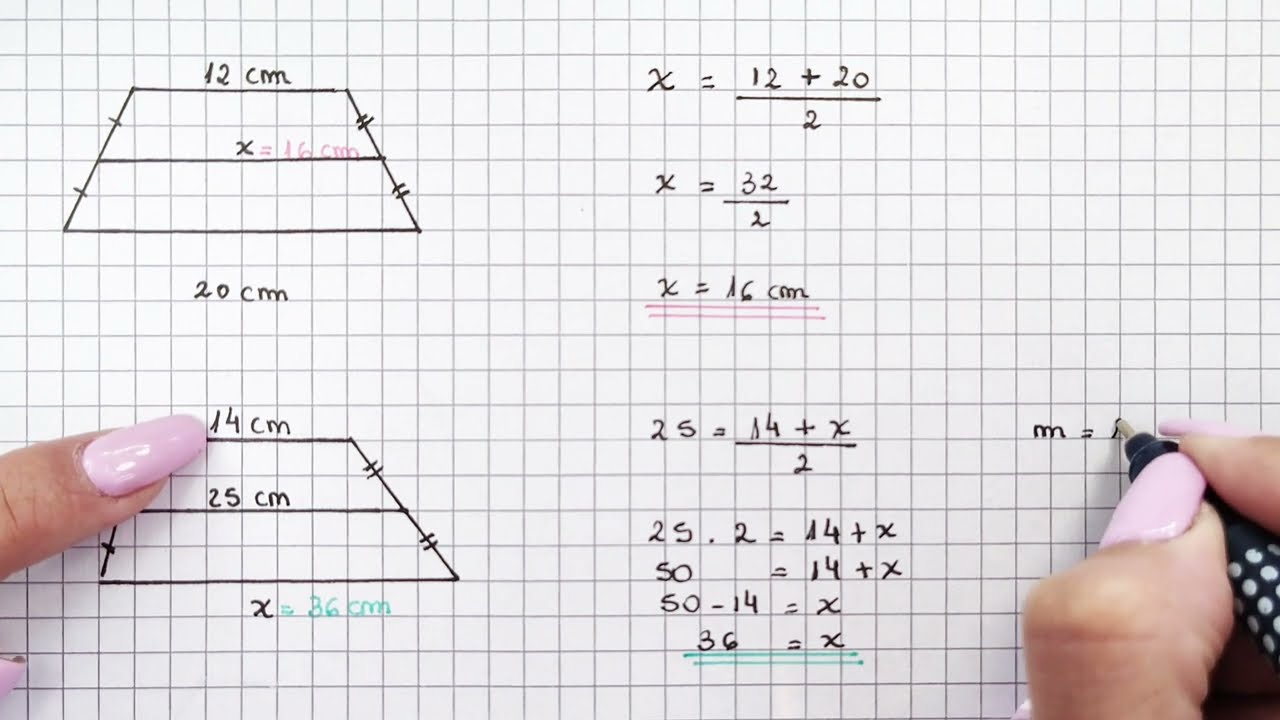 12 cm
x = 16 cm
20 cm
x = 12 + 20
2
x = 32
2
x = 16 cm
14 cm
25 cm
x = 36 cm
25 = 14 + x
2
25 . 2 = 14 + x
50 = 14 + x
50 - 14 = x
36 = x
m =